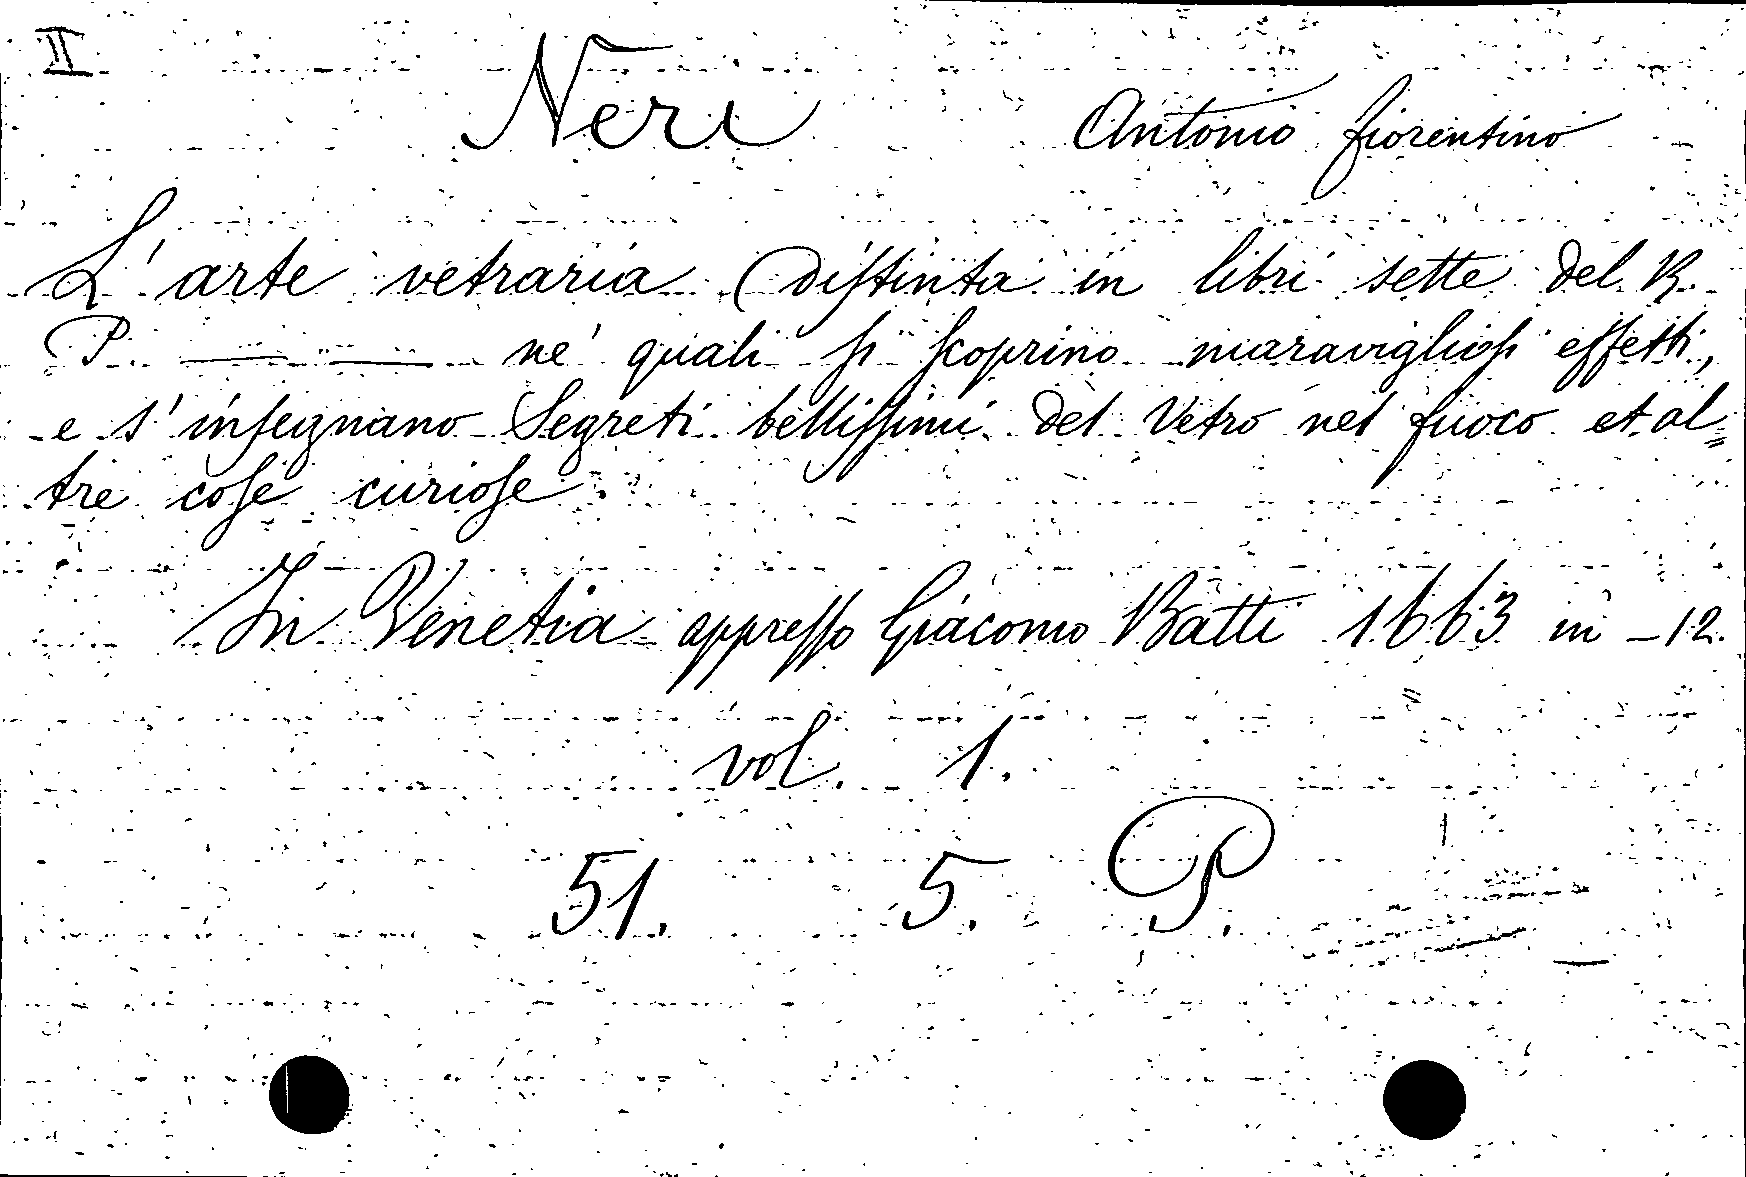 II
Neri Antonio fiorentino
L'arte vetraria (diſtinta in libri sette del R.
P. — — ne' quali ſi ſcoprino maraviglioſi effetti,
e s'inſegnano Segreti belliſſimi del Vetro nel fuoco et al=
tre coſe curioſe.
In Venetia appreſſo Giacomo Batti 1663 in -12.
vol. 1.
51. 5. P.